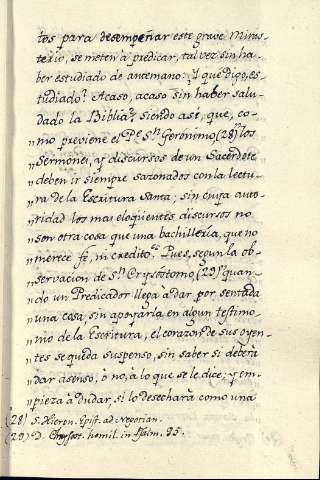 tos para desempeñar este grave Minis-
terio, se meten à predicar, tal vez sin ha-
ber estudiado de antemano: ¿I què digo, es-
tudiado? Acaso, acaso sin haber salu-
dado la Biblia? siendo asì, que, co-
mo previene el Pe. Sn. Geronimo (28) „los
„Sermones, y discursos de un Sacerdote
„deben ir siempre sazonados con la lectu-
„ra de la Escritura Santa; sin cuya auto-
„ridad los mas eloqüentes discursos no
„son otra cosa que una bachillerìa, que no
„merece fè, ni credito." Pues, segun la ob-
servacion de Sn. Crysostomo (29) „quan-
„do un Predicador llega à dar por sentada
„una cosa, sin apoyarla en algun testimo-
„nio de la Escritura, el corazon de sus oyen-
„tes se queda suspenso, sin saber si deberà
„dar asenso, ò no, à lo que se le dice; y em-
„pieza à dudar, si lo desecharà como una
(28) S. Hieron. Epist. ad Nepotian.
(29) D. Chrysost. homil. in Psalm. 95.